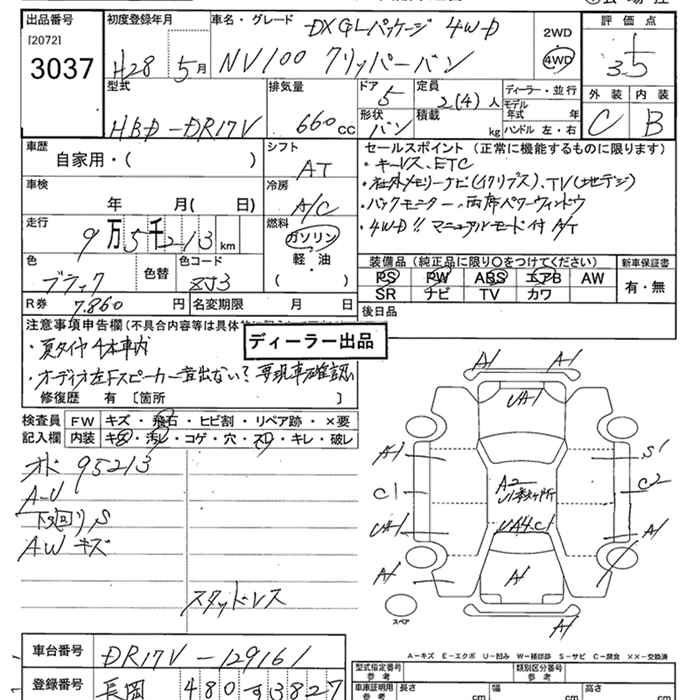 出品番号
[2072]
3037
初度登録年月
H28 5月
車名・グレード
DX GLパッケージ 4WD
NV100 クリッパーバン
2WD
4WD
評価点
3.5
外装 内装
C B
型式
HBD-DR17V
排気量
660 cc
ドア 5
形状 バン
定員 2(4) 人
積載 kg
ディーラー・並行
モデル年式 年
ハンドル 左・右
車歴
自家用・( )
シフト
AT
車検
年 月( 日)
冷房
A/C
走行
9万5千213 km
燃料
ガソリン
軽・油
( )
色
ブラック
色替
色コード
ZJ3
R券 7,860 円
名変期限 月 日
セールスポイント (正常に機能するものに限ります)
・キーレス、ETC
・社外メモリーナビ(イクリプス)、TV(地デジ)
・バックモニター・両席パワーウィンドウ
・4WD!! マニュアルモード付A/T
装備品 (純正品に限り○をつけてください)
PS PW ABS エアB AW
SR ナビ TV カワ
新車保証書
有・無
後日品
注意事項申告欄(不具合内容等は具体的に
ディーラー出品
・夏タイヤ4本車内
・オーディオ左Fスピーカー音出ない?要現車確認
修復歴 有 〔箇所 〕
検査員記入欄
FW キズ・飛石・ヒビ割・リペア跡・×要
内装 キズ・汚レ・コゲ・穴・スレ・キレ・破レ
オド 95213
A-U
下回り S
AW キズ
スタッドレス
A1 A1
UA1
A1 S1
C1 A2 C2
UA1 UA4.C1 A1
A1 A1
A1
スペア
A-キズ E-エクボ U-凹み W-補修跡 S-サビ C-腐食 ××-交換済
車台番号
DR17V-129161
登録番号
長岡 480 す 3827
型式指定番号 参考
類別区分番号 参考
車庫証明用 参考
長さ cm 幅 cm 高さ cm